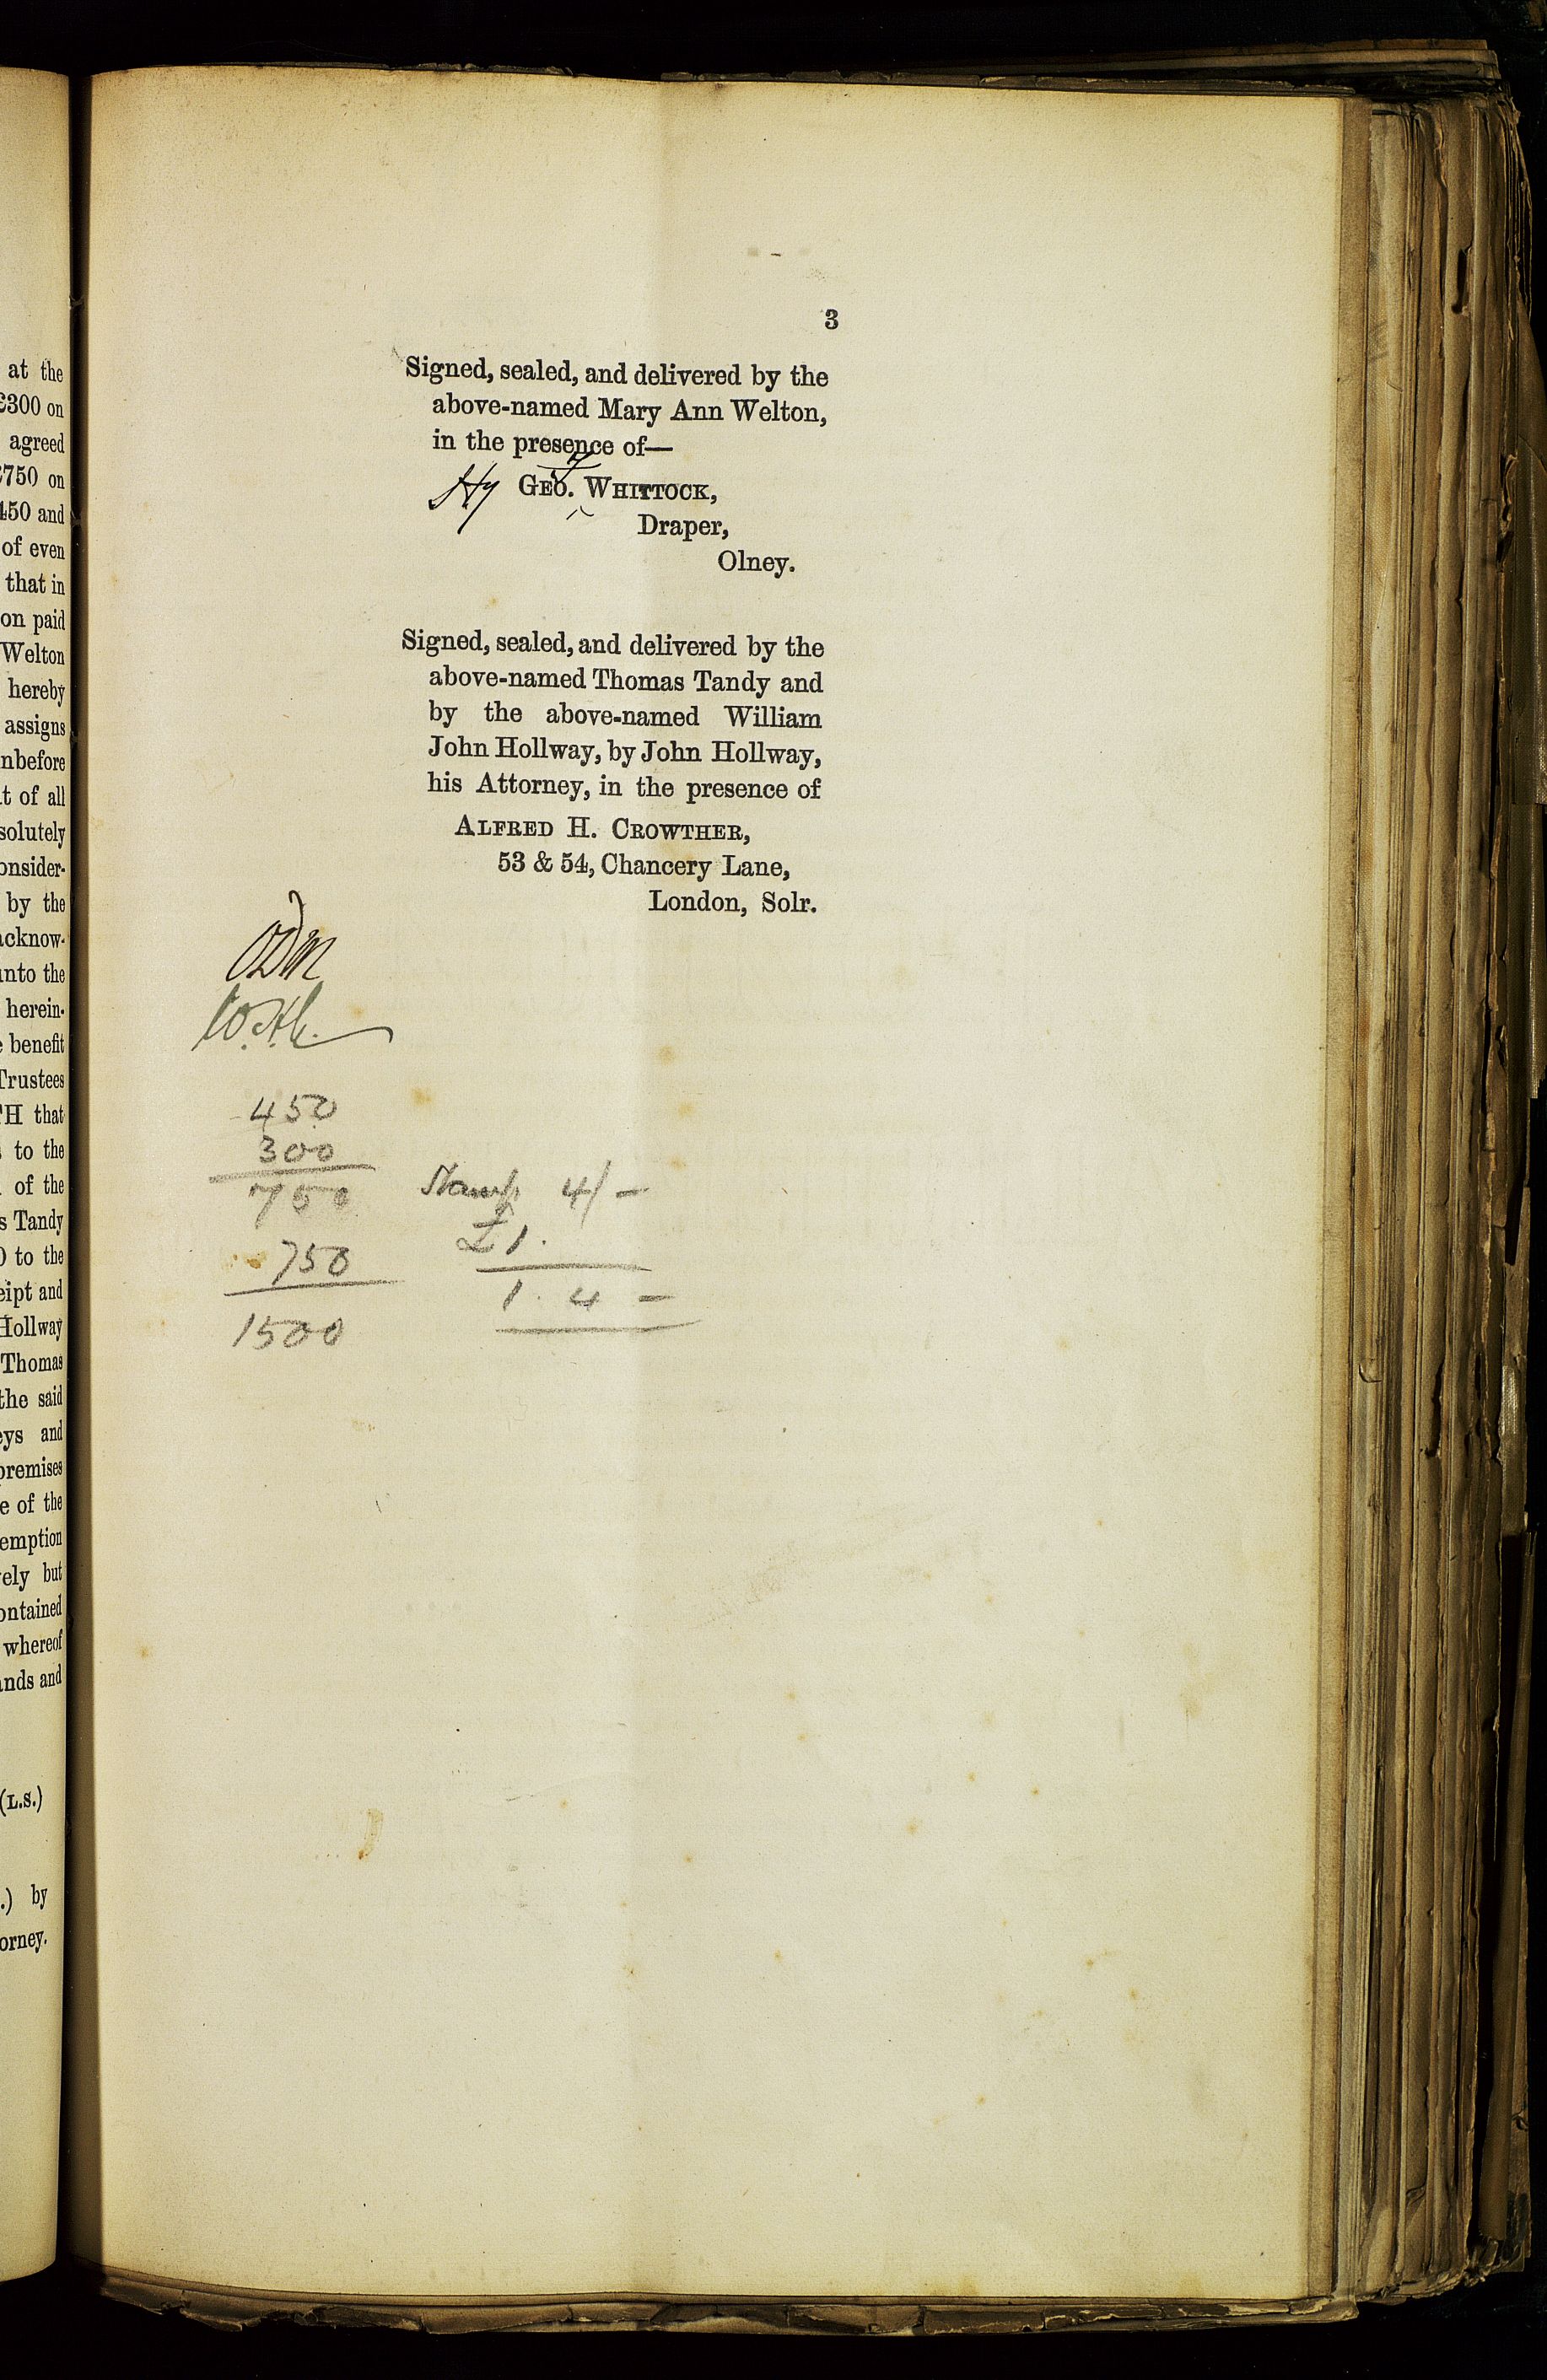 at the
£300 on
agreed
£750 on
450 and
of even
that in
on paid
Welton
hereby
assigns
nbefore
t of all
solutely
onsider-
by the
acknow-
unto the
herein-
benefit
Trustees
TH that
to the
of the
s Tandy
to the
eipt and
Hollway
Thomas
the said
eys and
premises
e of the
emption
ely but
ontained
whereof
ands and
(L.S.)
.) by
orney.
3
Signed, sealed, and delivered by the
above-named Mary Ann Welton,
in the presence of—
Hy GEO. WHITTOCK,
Draper,
Olney.
Signed, sealed, and delivered by the
above-named Thomas Tandy and
by the above-named William
John Hollway, by John Hollway,
his Attorney, in the presence of
ALFRED H. CROWTHER,
53 & 54, Chancery Lane,
London, Solr.
450
300
750
750
1500
Stamp 4/–
£1.
1. 4 –